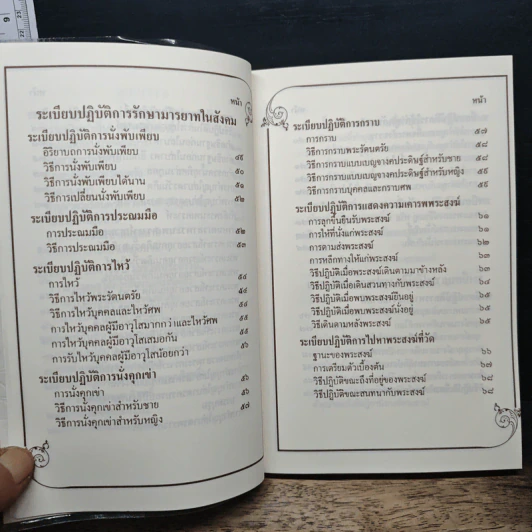 หน้า
ระเบียบปฏิบัติการรักษามารยาทในสังคม
ระเบียบปฏิบัติการนั่งพับเพียบ
อิริยาบถการนั่งพับเพียบ ๔๙
วิธีการนั่งพับเพียบ ๕๐
วิธีการนั่งพับเพียบได้นาน ๕๑
วิธีการเปลี่ยนนั่งพับเพียบ ๕๒
ระเบียบปฏิบัติการประณมมือ
การประณมมือ ๕๒
วิธีการประณมมือ ๕๓
ระเบียบปฏิบัติการไหว้
การไหว้ ๕๔
วิธีการไหว้พระรัตนตรัย ๕๔
วิธีการไหว้บุคคลและไหว้ศพ ๕๔
การไหว้บุคคลผู้มีอาวุโสมากกว่าและไหว้ศพ ๕๕
การไหว้บุคคลผู้มีอาวุโสเสมอกัน ๕๕
การรับไหว้บุคคลผู้มีอาวุโสน้อยกว่า ๕๕
ระเบียบปฏิบัติการนั่งคุกเข่า
การนั่งคุกเข่า ๕๖
วิธีการนั่งคุกเข่าสำหรับชาย ๕๖
วิธีการนั่งคุกเข่าสำหรับหญิง ๕๗
หน้า
ระเบียบปฏิบัติการกราบ
การกราบ ๕๗
วิธีการกราบพระรัตนตรัย ๕๘
วิธีการกราบแบบเบญจางคประดิษฐ์สำหรับชาย ๕๘
วิธีการกราบแบบเบญจางคประดิษฐ์สำหรับหญิง ๕๙
วิธีการกราบบุคคลและกราบศพ ๕๙
ระเบียบปฏิบัติการแสดงความเคารพพระสงฆ์
การลุกขึ้นยืนรับพระสงฆ์ ๖๑
การให้ที่นั่งแก่พระสงฆ์ ๖๑
การตามส่งพระสงฆ์ ๖๒
การหลีกทางให้แก่พระสงฆ์ ๖๓
วิธีปฏิบัติเมื่อพระสงฆ์เดินตามมาข้างหลัง ๖๓
วิธีปฏิบัติเมื่อเดินสวนทางกับพระสงฆ์ ๖๔
วิธีปฏิบัติเมื่อพบพระสงฆ์ยืนอยู่ ๖๔
วิธีปฏิบัติเมื่อพบพระสงฆ์นั่งอยู่ ๖๕
วิธีเดินตามหลังพระสงฆ์ ๖๕
ระเบียบปฏิบัติการไปหาพระสงฆ์ที่วัด
ฐานะของพระสงฆ์ ๖๖
การเตรียมตัวเบื้องต้น ๖๖
วิธีปฏิบัติขณะถึงที่อยู่ของพระสงฆ์ ๖๘
วิธีปฏิบัติขณะสนทนากับพระสงฆ์ ๖๘